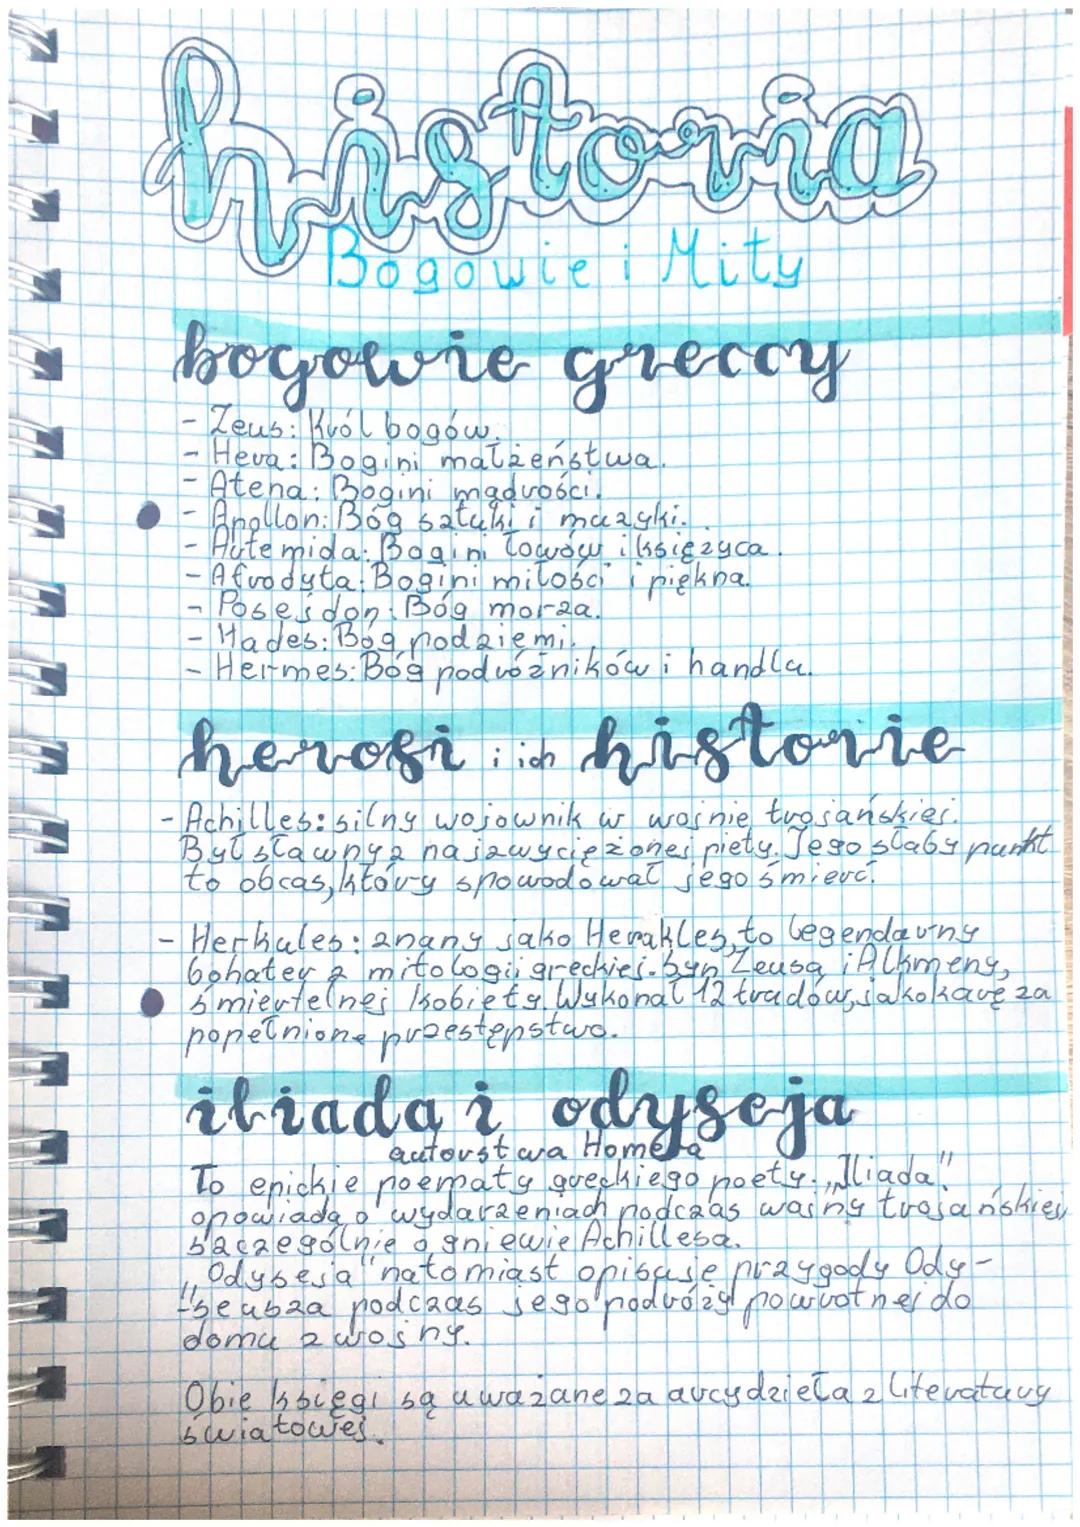 historia
Bogowie i Mity
bogowie greccy
- Zeus: Król bogów.
- Hera: Bogini małżeństwa.
- Atena: Bogini mądrości.
- Apollon: Bóg sztuki i muzyki.
- Artemida: Bogini łowów i księżyca.
- Afrodyta: Bogini miłości i piękna.
- Posejdon: Bóg morza.
- Hades: Bóg podziemi.
- Hermes: Bóg podróżników i handlu.
herosi i ich historie
- Achilles: silny wojownik w wojnie trojańskiej.
Był sławny z najzwyciężonej piety. Jego słaby punkt
to obcas, który spowodował jego śmierć.
- Herkules: znany jako Herakles, to legendarny
bohater z mitologii greckiej. Syn Zeusa i Alkmeny,
śmiertelnej kobiety. Wykonał 12 trudów, jako karę za
popełnione przestępstwo.
iliada i odyseja
autorstwa Homera
To epickie poematy greckiego poety. „Iliada"
opowiada o wydarzeniach podczas wojny trojańskiej,
szczególnie o gniewie Achillesa.
„Odyseja" natomiast opisuje przygody Ody-
"seusza podczas jego podróży powrotnej do
domu z wojny.
Obie księgi są uważane za arcydzieła z literatury
światowej.